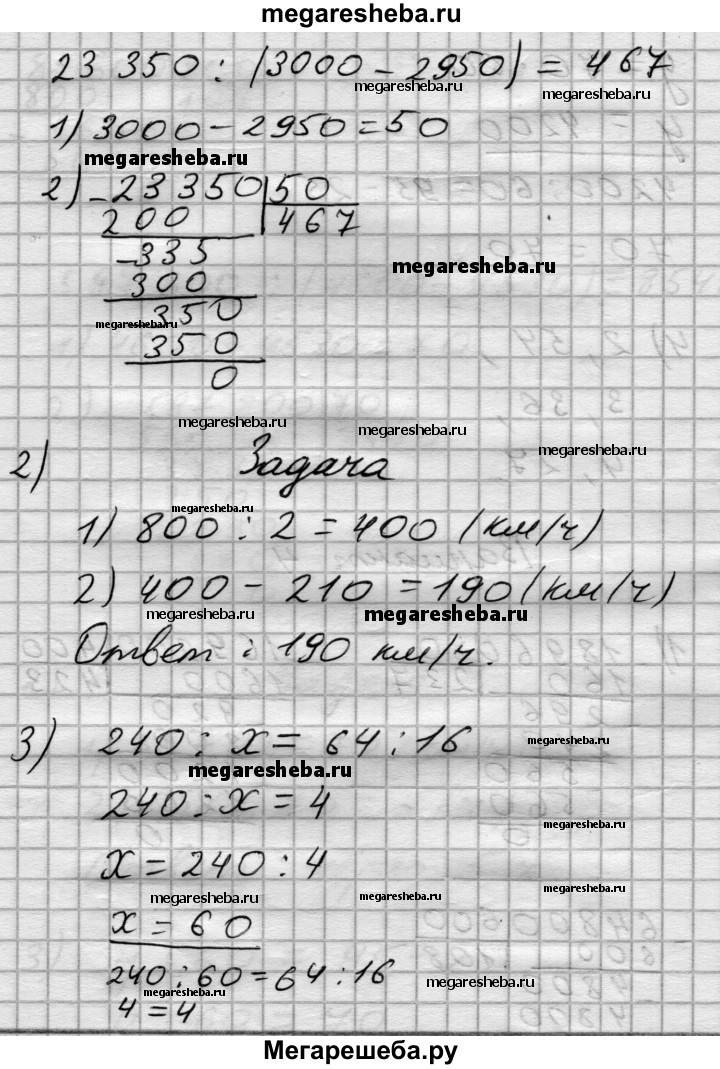 megaresheba.ru
23 350 : (3000 - 2950) = 467
megaresheba.ru megaresheba.ru
1) 3000 - 2950 = 50
megaresheba.ru
2) - 23 350 50
200 467
- 335
megaresheba.ru
300
350
megaresheba.ru
350
0
megaresheba.ru megaresheba.ru megaresheba.ru
2) Задача
megaresheba.ru
1) 800 : 2 = 400 (км/ч)
2) 400 - 210 = 190 (км/ч)
megaresheba.ru megaresheba.ru
Ответ : 190 км/ч.
3) 240 : x = 64 : 16
megaresheba.ru
megaresheba.ru
240 : x = 4
megaresheba.ru
x = 240 : 4
megaresheba.ru megaresheba.ru megaresheba.ru
x = 60
240 : 60 = 64 : 16
megaresheba.ru megaresheba.ru
4 = 4
Мегарешеба.ру